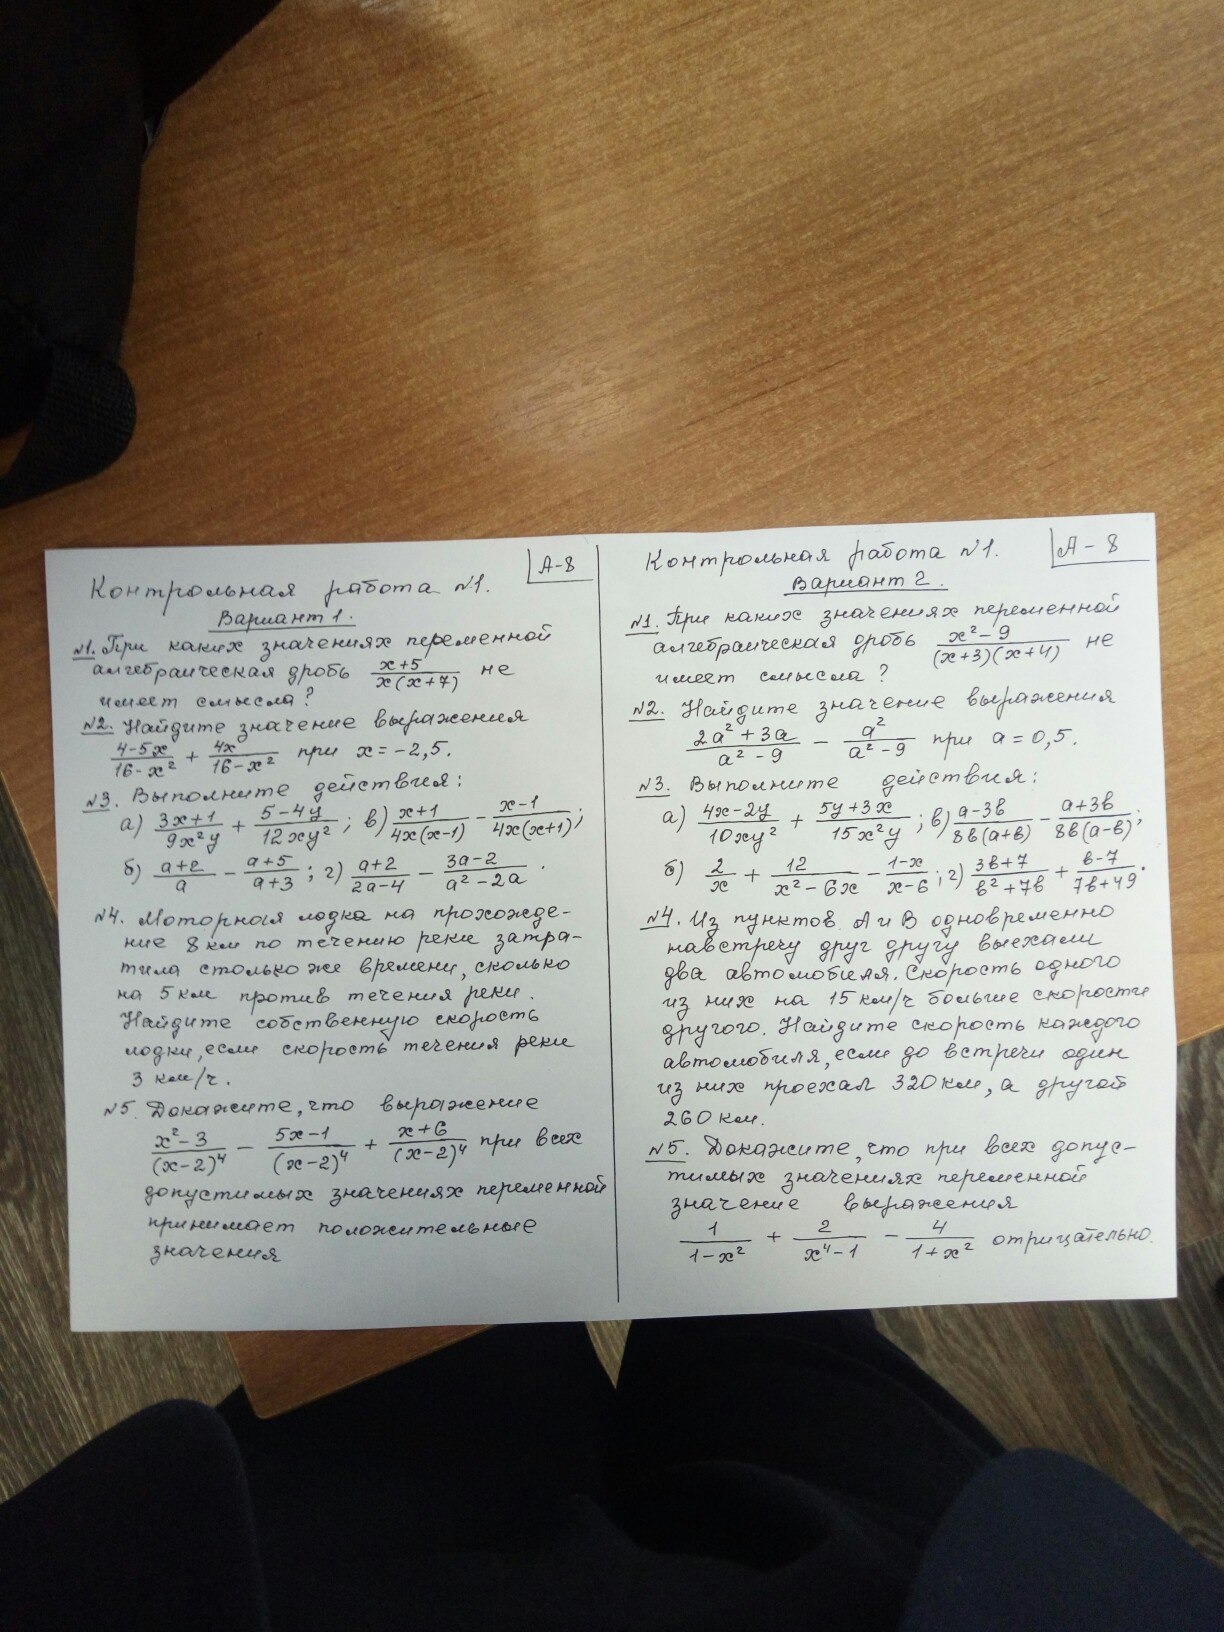 А-8
Контрольная работа №1.
Вариант 1.
№1. При каких значениях переменной
алгебраическая дробь (x+5)/(x(x+7)) не
имеет смысла?
№2. Найдите значение выражения
(4-5x)/(16-x²) + 4x/(16-x²) при x=-2,5.
№3. Выполните действия:
а) (3x+1)/(9x²y) + (5-4y)/(12xy²); в) (x+1)/(4x(x-1)) - (x-1)/(4x(x+1));
б) (a+2)/a - (a+5)/(a+3); г) (a+2)/(2a-4) - (3a-2)/(a²-2a).
№4. Моторная лодка на прохожде-
ние 8 км по течению реки затра-
тила столько же времени, сколько
на 5 км против течения реки.
Найдите собственную скорость
лодки, если скорость течения реки
3 км/ч.
№5. Докажите, что выражение
(x²-3)/(x-2)⁴ - (5x-1)/(x-2)⁴ + (x+6)/(x-2)⁴ при всех
допустимых значениях переменной
принимает положительные
значения
А-8
Контрольная работа №1.
Вариант 2.
№1. При каких значениях переменной
алгебраическая дробь (x²-9)/((x+3)(x+4)) не
имеет смысла?
№2. Найдите значение выражения
(2a²+3a)/(a²-9) - a²/(a²-9) при a=0,5.
№3. Выполните действия:
а) (4x-2y)/(10xy²) + (5y+3x)/(15x²y); в) (a-3b)/(8b(a+b)) - (a+3b)/(8b(a-b));
б) 2/x + 12/(x²-6x) - (1-x)/(x-6); г) (3b+7)/(b²+7b) + (b-7)/(7b+49).
№4. Из пунктов А и В одновременно
навстречу друг другу выехали
два автомобиля. Скорость одного
из них на 15 км/ч больше скорости
другого. Найдите скорость каждого
автомобиля, если до встречи один
из них проехал 320 км, а другой
260 км.
№5. Докажите, что при всех допус-
тимых значениях переменной
значение выражения
1/(1-x²) + 2/(x⁴-1) - 4/(1+x²) отрицательно.